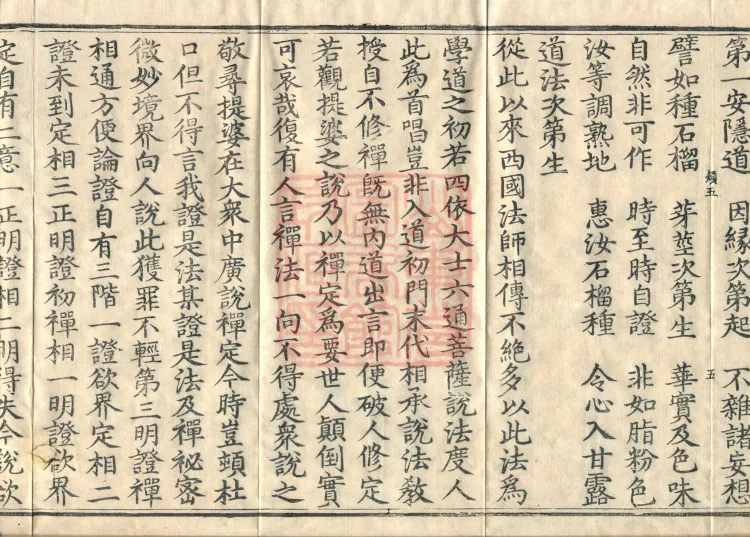 第一安隱道　因縁次第起　不雜諸妄想
譬如種石榴　芽莖次第生　華實及色味
自然非可作　時至時自證　非如脂粉色
汝等調熟地　惠汝石榴種　令心入甘露
道法次第生
從此以來西國法師相傳不絕多以此法爲
學道之初若四依大士六通菩薩說法度人
此爲首唱豈非入道初門末代相承說法教
授自不修禪旣無內道出言即便破人修定
若觀提婆之說乃以禪定爲要世人顛倒實
可哀哉復有人言禪法一向不得處衆說之
敬尋提婆在大衆中廣說禪定今時豈頓杜
口但不得言我證是法其證是法及禪祕密
微妙境界向人說此獲罪不輕第三明證禪
相通方便論證自有三階一證欲界定相二
證未到定相三正明證初禪相一明證欲界
定自有二意一正明證相二明得失今說欲
五